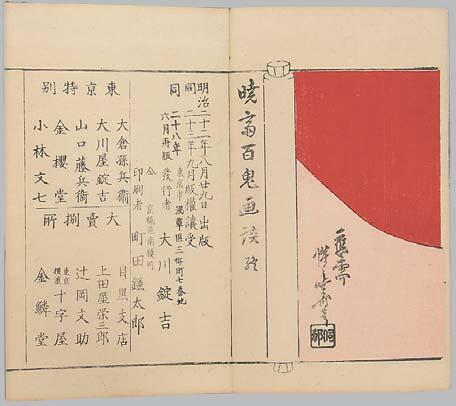 應需
暁斎百鬼画談 終
明治二十二年八月廿九日 出版
同二十三年九月版權讓受
同二十八年六月再版
東京市淺草區三好町七番地
發行者 大川錠吉
仝 京橋區南槇町
印刷者 町田鎌太郎
東京特別
大倉孫兵衛
大川屋錠吉
山口藤兵衛
金櫻堂
小林文七
大賣捌所
目黒支店
上田屋栄三郎
辻岡文助
東京横濱 十字屋
金鱗堂